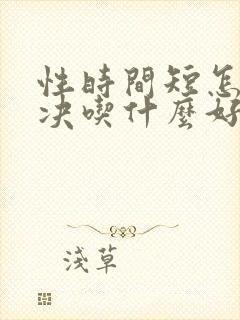 性時間短怎
決喫什麼好
淺草